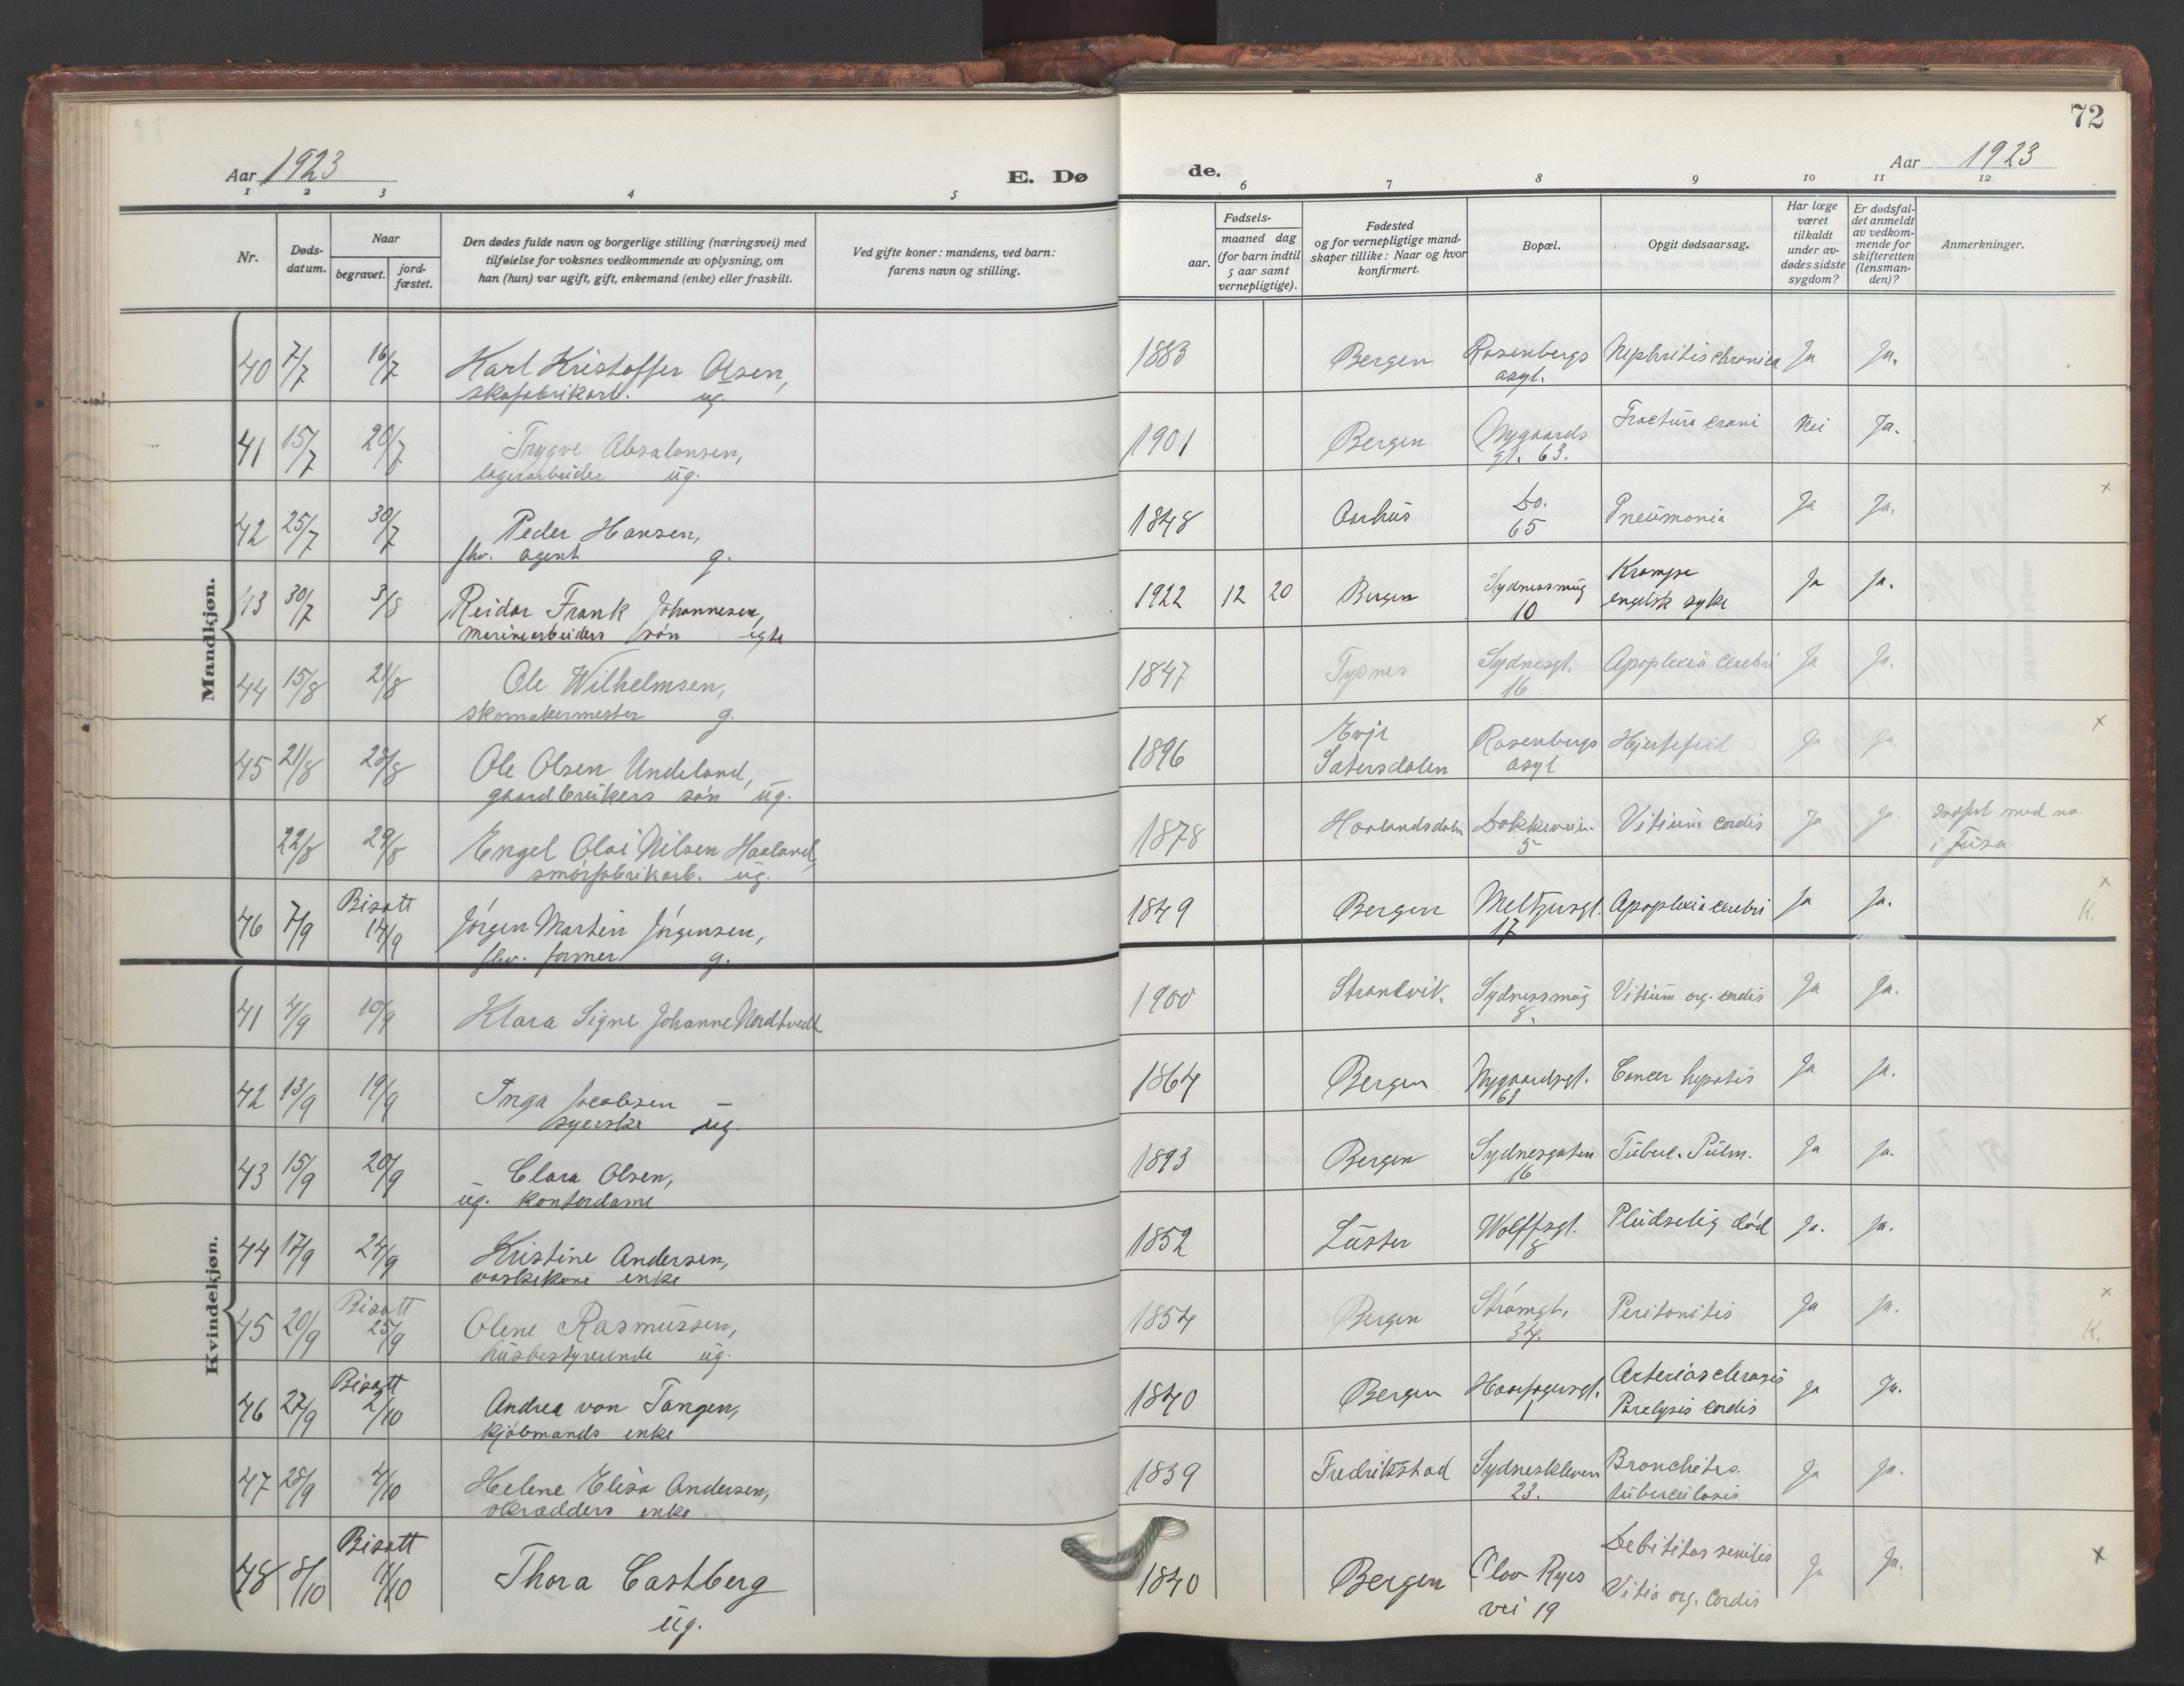 72
Aar 1923
E. Dø
de.
Aar 1923
1 2 3 4 5
6 7 8 9 10 11 12
Nr.
Døds-
datum.
Naar
begravet.
jord-
fæstet.
Den dødes fulde navn og borgerlige stilling (næringsvei) med
tilføielse for voksnes vedkommende av oplysning, om
han (hun) var ugift, gift, enkemand (enke) eller fraskilt.
Ved gifte koner: mandens, ved barn:
farens navn og stilling.
Fødsels-
aar.
maaned dag
(for barn indtil
5 aar samt
vernepligtige).
Fødested
og for vernepligtige mand-
skaper tillike: Naar og hvor
konfirmert.
Bopæl.
Opgit dødsaarsag.
Har læge
været
tilkaldt
under av-
dødes sidste
sygdom?
Er dødsfal-
det anmeldt
av vedkom-
mende for
skifteretten
(lensman-
den)?
Anmerkninger.
Mandkjøn.
40 7/7 16/7 Karl Kristoffer Olsen, 1883 Bergen Rosenbergs Nephritis chronica Ja Ja.
skofabrikarb. ug. asyl.
41 15/7 20/7 Trygve Absalonsen, 1901 Bergen Nygaards Fractura crani Nei Ja.
lagerarbeider ug. gt. 63.
42 25/7 30/7 Peder Hansen, 1848 Aarhus Do. Pneumonia Ja Ja. x
fhv. agent g. 65
43 30/7 3/8 Reidar Frank Johannesen, 1922 12 20 Bergen Sydnessmug Krampe Ja Ja.
marinearbeiders søn egte 10 engelsk syke
44 15/8 21/8 Ole Wilhelmsen, 1847 Tysnes Sydnesgt. Apoplexia cerebri Ja Ja.
skomakermester g. 16
45 21/8 28/8 Ole Olsen Undeland, 1896 Evje Rosenbergs Hjertefeil Ja Ja. x
gaardbrukers søn ug. Satersdalen asyl
22/8 29/8 Engel Olai Nilsen Haaland, 1878 Haalandsdalen Dokkeveien Vitium cordis Ja Ja. indført med no.
smørfabrikarb. ug. 5 i Fusa
46 7/9 Bisatt 14/9 Jørgen Martin Jørgensen, 1849 Bergen Meltzersgt. Apoplexia cerebri Ja Ja. x K.
fhv. former g. 17
Kvindekjøn.
41 4/9 10/9 Klara Signe Johanne Nordtvedt 1900 Strandvik. Sydnessmug Vitium org. cordis Ja Ja.
8.
42 13/9 19/9 Inga Jacobsen 1864 Bergen Nygaardsgt. Cancer hepatis Ja Ja.
syerske ug. 63
43 15/9 20/9 Clara Olsen, 1893 Bergen Sydnesgaten Tuberc. Pulm. Ja Ja.
ug. kontordame 16
44 17/9 24/9 Kristine Andersen, 1852 Luster Wolffsgt. Pludselig død Ja. Ja.
vaskekone enke 8
45 20/9 Bisatt 25/9 Olene Rasmussen, 1854 Bergen Strømgt. Peritonitis Ja Ja. x K.
husbestyrerinde ug. 34.
46 27/9 Bisatt 2/10 Andrea von Tangen, 1840 Bergen Haarfagersgt. Arteriosclerosis Ja Ja.
kjøbmands enke 1 Paralysis cordis
47 28/9 4/10 Helene Elisa Andersen, 1839 Fredrikstad Sydneskleven Bronchitis Ja Ja.
skrædders enke 23. tuberculosis
48 8/10 Bisatt 11/10 Thora Castberg 1840 Bergen Olav Ryes Debilitas senilis Ja Ja. x
ug. vei 19 Vitia org. Cordis